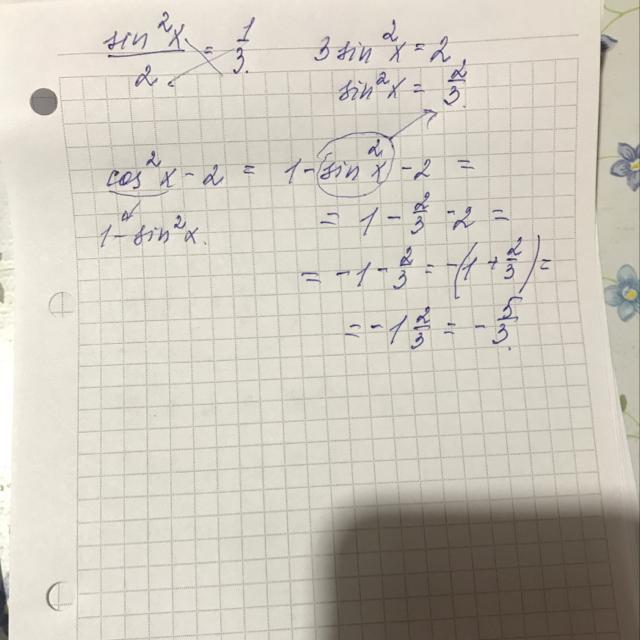 sin²x / 2 = 1/3
3 sin²x = 2
sin²x = 2/3
cos²x - 2 = 1 - sin²x - 2 =
1 - sin²x.
= 1 - 2/3 - 2 =
= -1 - 2/3 = -(1 + 2/3) =
= -1 2/3 = - 5/3.